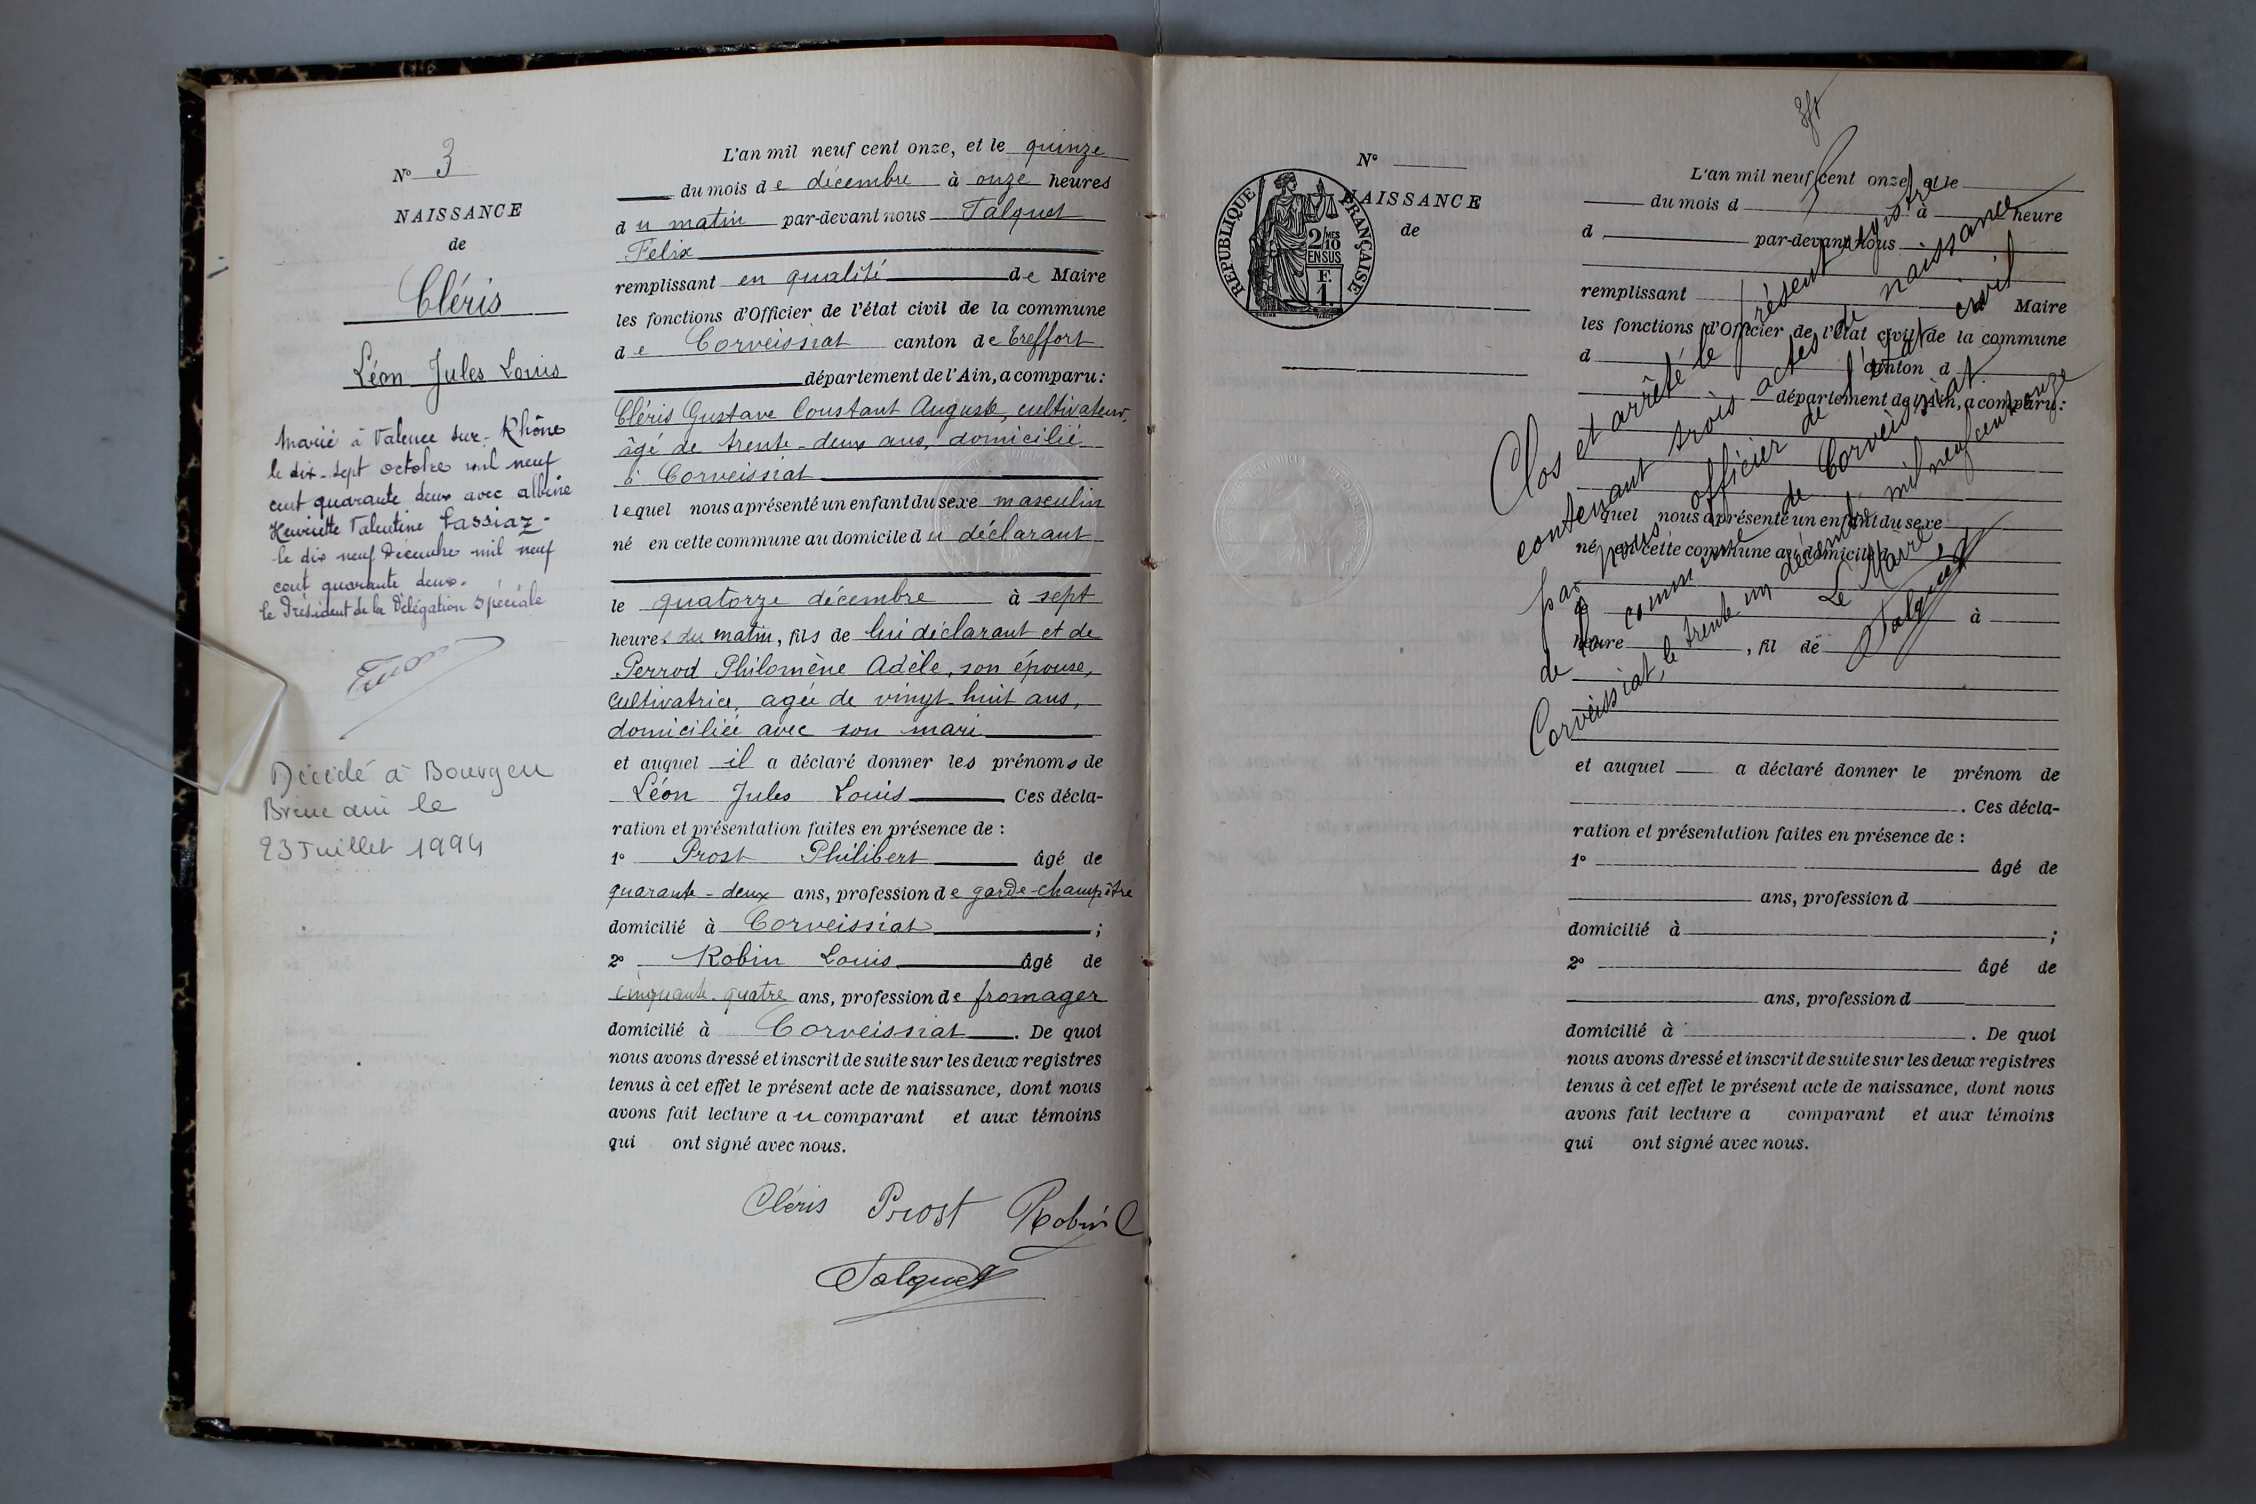 N° 3
NAISSANCE
de
Cléris
Léon Jules Louis
Marié à Valence sur-Rhône
le dix-sept octobre mil neuf
cent quarante deux avec Albine
Henriette Valentine Vassiaz -
le dix neuf Décembre mil neuf
cent quarante deux.
le Président de la Délégation Spéciale
Décédé à Bourg en
Bresse ain le
23 Juillet 1994
L'an mil neuf cent onze, et le quinze
du mois de décembre à onze heures
du matin par-devant nous Talquet
Félix
remplissant en qualité de Maire
les fonctions d'Officier de l'état civil de la commune
de Corveissiat canton de Treffort
département de l'Ain, a comparu :
Cléris Gustave Constant Auguste, cultivateur,
âgé de trente-deux ans, domicilié
à Corveissiat
lequel nous a présenté un enfant du sexe masculin
né en cette commune au domicile du déclarant
le quatorze décembre à sept
heures du matin, fils de lui déclarant et de
Perrod Philomène Adèle, son épouse,
cultivatrice, agée de vingt-huit ans,
domiciliée avec son mari
et auquel il a déclaré donner les prénoms de
Léon Jules Louis Ces décla-
ration et présentation faites en présence de :
1° Prost Philibert âgé de
quarante-deux ans, profession de garde-champêtre
domicilié à Corveissiat ;
2° Robin Louis âgé de
cinquante-quatre ans, profession de fromager
domicilié à Corveissiat . De quoi
nous avons dressé et inscrit de suite sur les deux registres
tenus à cet effet le présent acte de naissance, dont nous
avons fait lecture au comparant et aux témoins
qui ont signé avec nous.
Cléris Prost Robin L
Talquet
N°
NAISSANCE
de
RÉPUBLIQUE FRANÇAISE
2/10 MES
EN SUS
F.
1.
L'an mil neuf cent onze, et le
du mois d à heure
d par-devant nous
remplissant Maire
les fonctions d'Officier de l'état civil de la commune
d canton d
département de l'Ain, a comparu :
quel nous a présenté un enfant du sexe
né en cette commune au domicile d
le à
heure , fil de
et auquel a déclaré donner le prénom de
. Ces décla-
ration et présentation faites en présence de :
1° âgé de
ans, profession d
domicilié à ;
2° âgé de
ans, profession d
domicilié à . De quoi
nous avons dressé et inscrit de suite sur les deux registres
tenus à cet effet le présent acte de naissance, dont nous
avons fait lecture a comparant et aux témoins
qui ont signé avec nous.
Clos et arrêté le présent registre
contenant trois actes de naissance
par nous officier de l'état civil
de la commune de Corveissiat.
Corveissiat, le trente un décembre mil neuf cent onze
Le Maire
Talquet